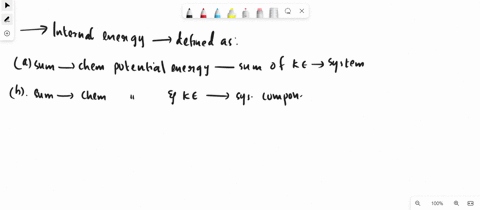 → Internal energy → defined as:
(a) sum → chem potential energy — sum of KE → system
(b). Sum → chem " & KE → sys. compon.
100%